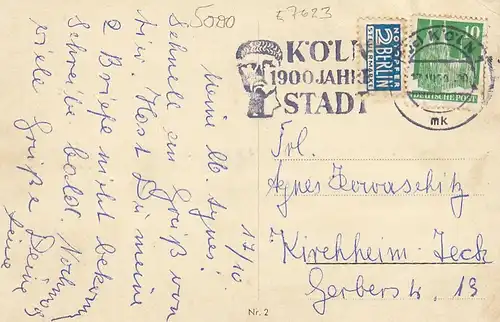 5080
£7623
KÖLN
1900 JAHRE
STADT
NOTOPFER
2 BERLIN
STEUERMARKE
KÖLN
10
DEUTSCHE POST
mk
17/10
Meine lb. Agnes!
Schnell ein Gruß von
hier. Hast Du meine
2 Briefe nicht bekom
Schreibe bald. Noch
viele Grüße Deine
Frl.
Agnes
Kirchheim-Teck
Gerberstr. 13
Nr. 2